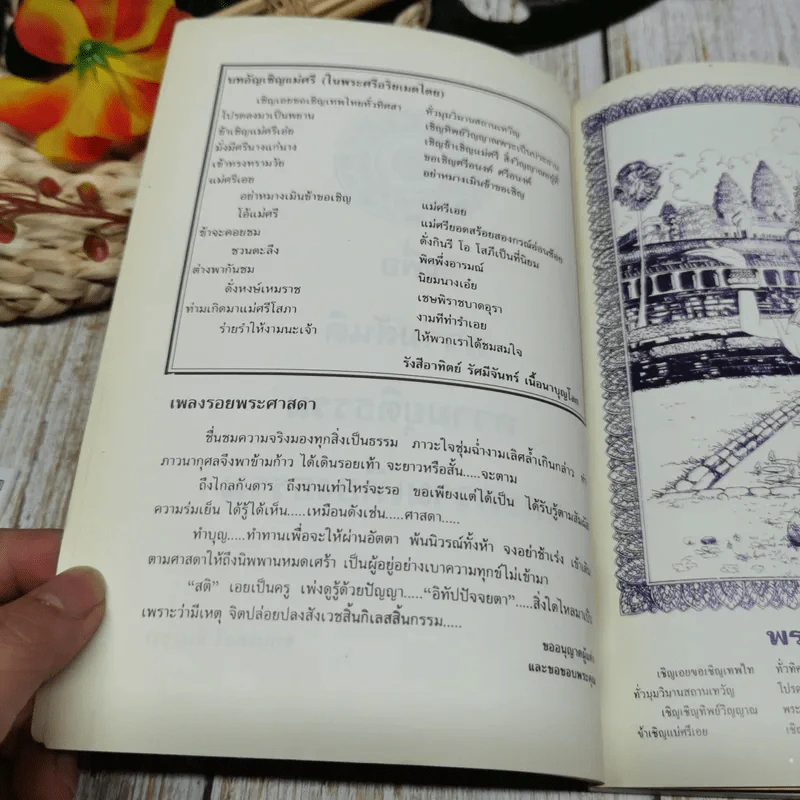 บทอัญเชิญแม่ศรี (ในพระศรีอริยเมตไตย)
เชิญเอยขอเชิญเทพไทยทั่วทิศสา ทั่วมุมวิมานสถานเทวัญ
โปรดลงมาเป็นพยาน เชิญทิพย์วิญญาณพระเป็นประธาน
ข้าเชิญแม่ศรีเอ๋ย เชิญข้าเชิญแม่ศรี
มั่งมีศรีนางแก่นาง ขอเชิญศรีอนงค์ ศรีอนงค์
เข้าทรงทรามวัย อย่าหมางเมินข้าขอเชิญ
แม่ศรีเอย
อย่าหมางเมินข้าขอเชิญ แม่ศรีเอย
โอ้แม่ศรี แม่ศรียอดสร้อยสองกรณ์อ่อนช้อย
ข้าจะคอยชม ดั่งกินรี โอ โสภีเป็นที่นิยม
ชวนตะลึง พิศพึ่งอารมณ์
ต่างพากันชม นิยมนางเอ๋ย
ดั่งหงษ์เหมราช เชษพิราชบาดอุรา
ทำมเกิดมาแม่ศรีโสภา งามทีท่ารำเอย
ร่ายรำให้งามนะเจ้า ให้พวกเราได้ชมสมใจ
รังสีอาทิตย์ รัศมีจันทร์ เนื้อนาบุญโลก
เพลงรอยพระศาสดา
ชื่นชมความจริงมองทุกสิ่งเป็นธรรม ภาวะใจชุ่มฉ่ำงามเลิศล้ำเกินกล่าว ทำ
ภาวนากุศลจึงพาข้ามก้าว ได้เดินรอยเท้า จะยาวหรือสั้น.....จะตาม
ถึงไกลกันดาร ถึงนานเท่าไหร่จะรอ ขอเพียงแต่ได้เป็น ได้รับรู้ตามสัมผัส
ความร่มเย็น ได้รู้ได้เห็น.....เหมือนดังเช่น.....ศาสดา.....
ทำบุญ.....ทำทานเพื่อจะให้ผ่านอัตตา พ้นนิวรณ์ทั้งห้า จงอย่าช้าเร่ง เข้าเดิน
ตามศาสดาให้ถึงนิพพานหมดเศร้า เป็นผู้อยู่อย่างเบาความทุกข์ไม่เข้ามา
"สติ" เอยเป็นครู เพ่งดูรู้ด้วยปัญญา....."อิทัปปัจจยตา".....สิ่งใดไหลมาเป็น
เพราะว่ามีเหตุ จิตปล่อยปลงสังเวชสิ้นกิเลสสิ้นกรรม.....
ขออนุญาตผู้แต่ง
และขอขอบพระคุณ
พร
เชิญเอยขอเชิญเทพไท ทั่วทิศ
ทั่วมุมวิมานสถานเทวัญ โปรด
เชิญเชิญทิพย์วิญญาณ พระ
จ้าเชิญแม่ศรีเอย เชิญ